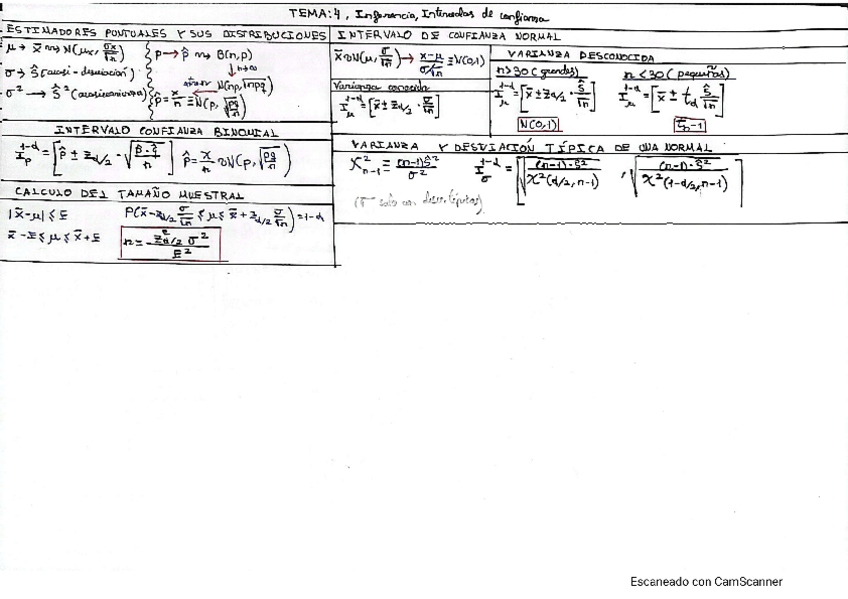 TEMA: 4, Inferencia, Intervalos de confianza
ESTIMADORES PUNTUALES Y SUS DISTRIBUCIONES
μ → x̄ ~> N(μx, σx/√n)
σ → Ŝ (cuasi-desviación)
σ² → Ŝ² (cuasivarianza)
p → p̂ ~> B(n,p)
n→∞
N(np, √npq)
p̂ = x/n ≡ N(p, √pq/n)
INTERVALO CONFIANZA BINOMIAL
I_p^1-α = [p̂ ± Zα/2 · √(p̂·q̂/n)] p̂ = x/n ~ N(p, √pq/n)
CALCULO DEL TAMAÑO MUESTRAL
|x̄-μ| ≤ E P(x̄ - zα/2 σ/√n ≤ μ ≤ x̄ + zα/2 σ/√n) = 1-α
x̄ - E ≤ μ ≤ x̄ + E n = z²α/2 σ² / E²
INTERVALO DE CONFIANZA NORMAL
x̄ ~ N(μ, σ/√n) → x-μ / σ/√n ≡ N(0,1)
Varianza conocida
I_μ^1-α = [x̄ ± zα/2 · σ/√n]
VARIANZA DESCONOCIDA
n>30 (grandes) n<30 (pequeñas)
I_μ^1-α = [x̄ ± zα/2 · ŝ/√n] I_μ^1-α = [x̄ ± tα ŝ/√n]
N(0,1) tn-1
VARIANZA Y DESVIACIÓN TÍPICA DE UNA NORMAL
χ²n-1 = (n-1)ŝ²/σ² I_σ^1-α = [√((n-1)·ŝ²/χ²(α/2, n-1)), √((n-1)·ŝ²/χ²(1-α/2, n-1))]
Escaneado con CamScanner